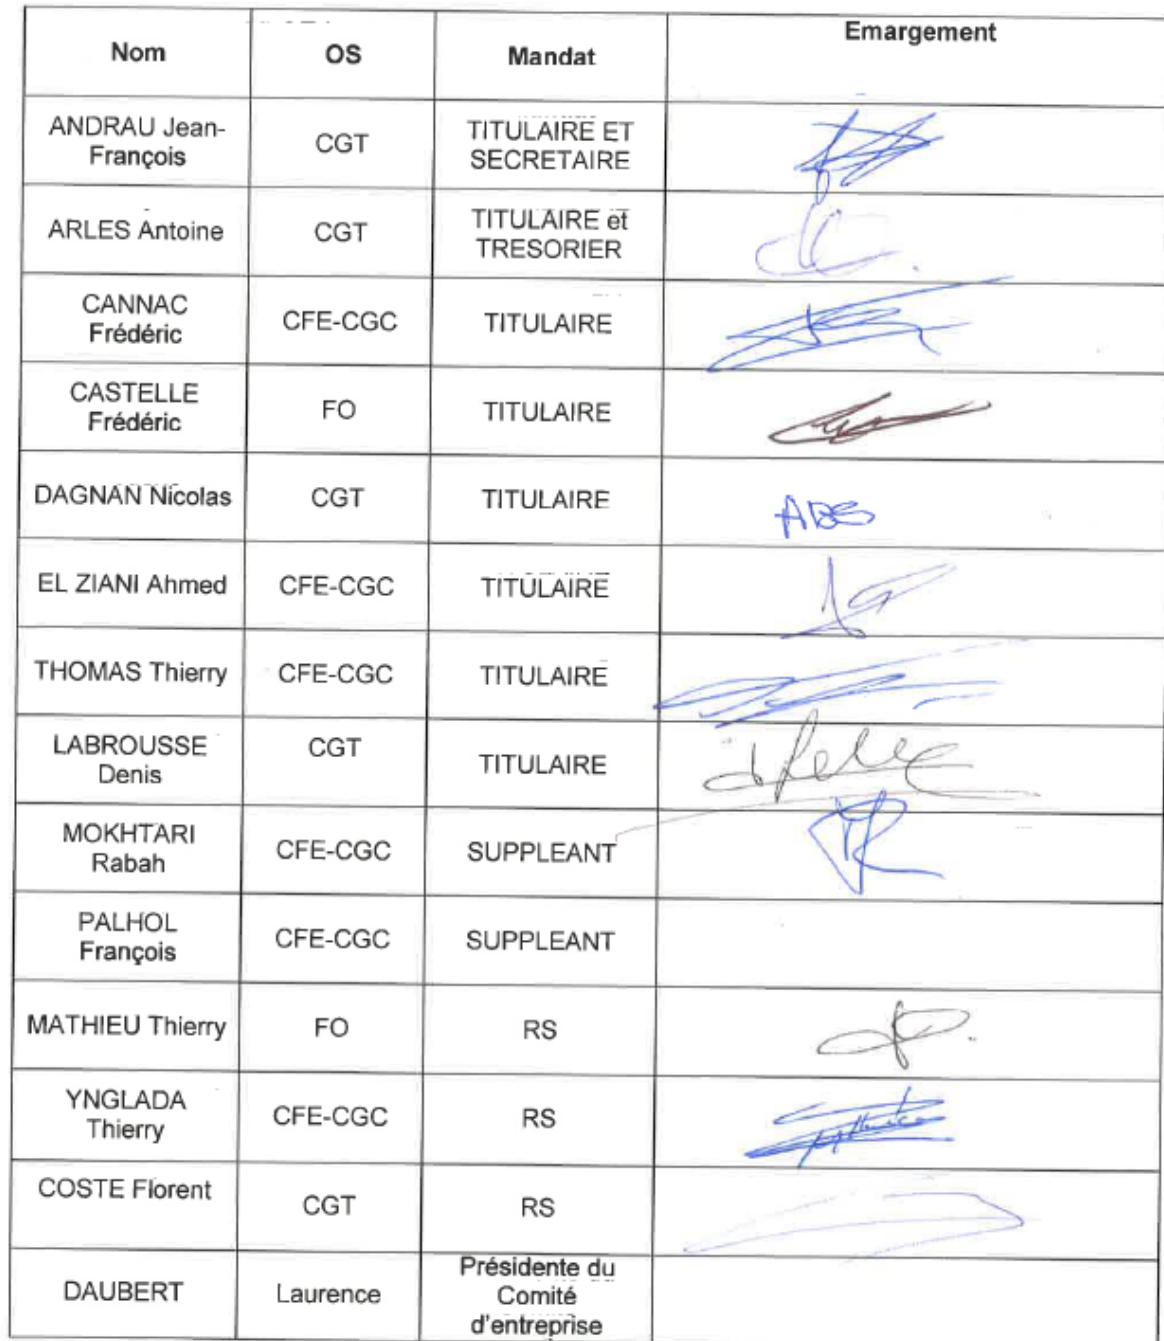 Nom OS Mandat Emargement
ANDRAU Jean-
François
CGT
TITULAIRE ET
SECRETAIRE
ARLES Antoine
CGT
TITULAIRE et
TRESORIER
CANNAC
Frédéric
CFE-CGC
TITULAIRE
CASTELLE
Frédéric
FO
TITULAIRE
DAGNAN Nicolas
CGT
TITULAIRE
ABS
EL ZIANI Ahmed
CFE-CGC
TITULAIRE
THOMAS Thierry
CFE-CGC
TITULAIRE
LABROUSSE
Denis
CGT
TITULAIRE
MOKHTARI
Rabah
CFE-CGC
SUPPLEANT
PALHOL
François
CFE-CGC
SUPPLEANT
MATHIEU Thierry
FO
RS
YNGLADA
Thierry
CFE-CGC
RS
COSTE Florent
CGT
RS
DAUBERT
Laurence
Présidente du
Comité
d'entreprise